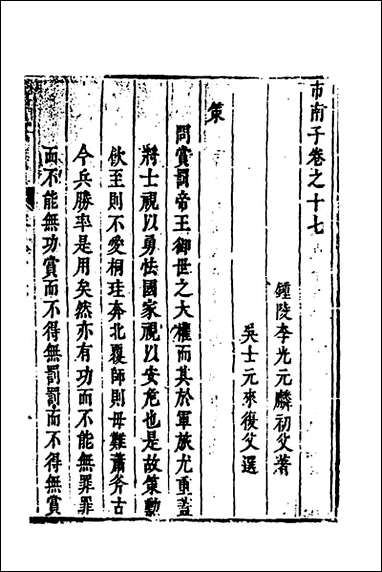 市南子卷之十七
鍾陵李光元麟初父著
吳士元來復父選
策
問賞罰帝王御世之大權而其於軍旅尤重蓋
將士視以勇怯國家視以安危也是故策勳
飲至則不愛桐珪奔北覆師則毋難蕭斧古
今兵勝率是用矣然亦有功而不能無罪罪
而不能無功賞而不得無罰罰而不得無賞